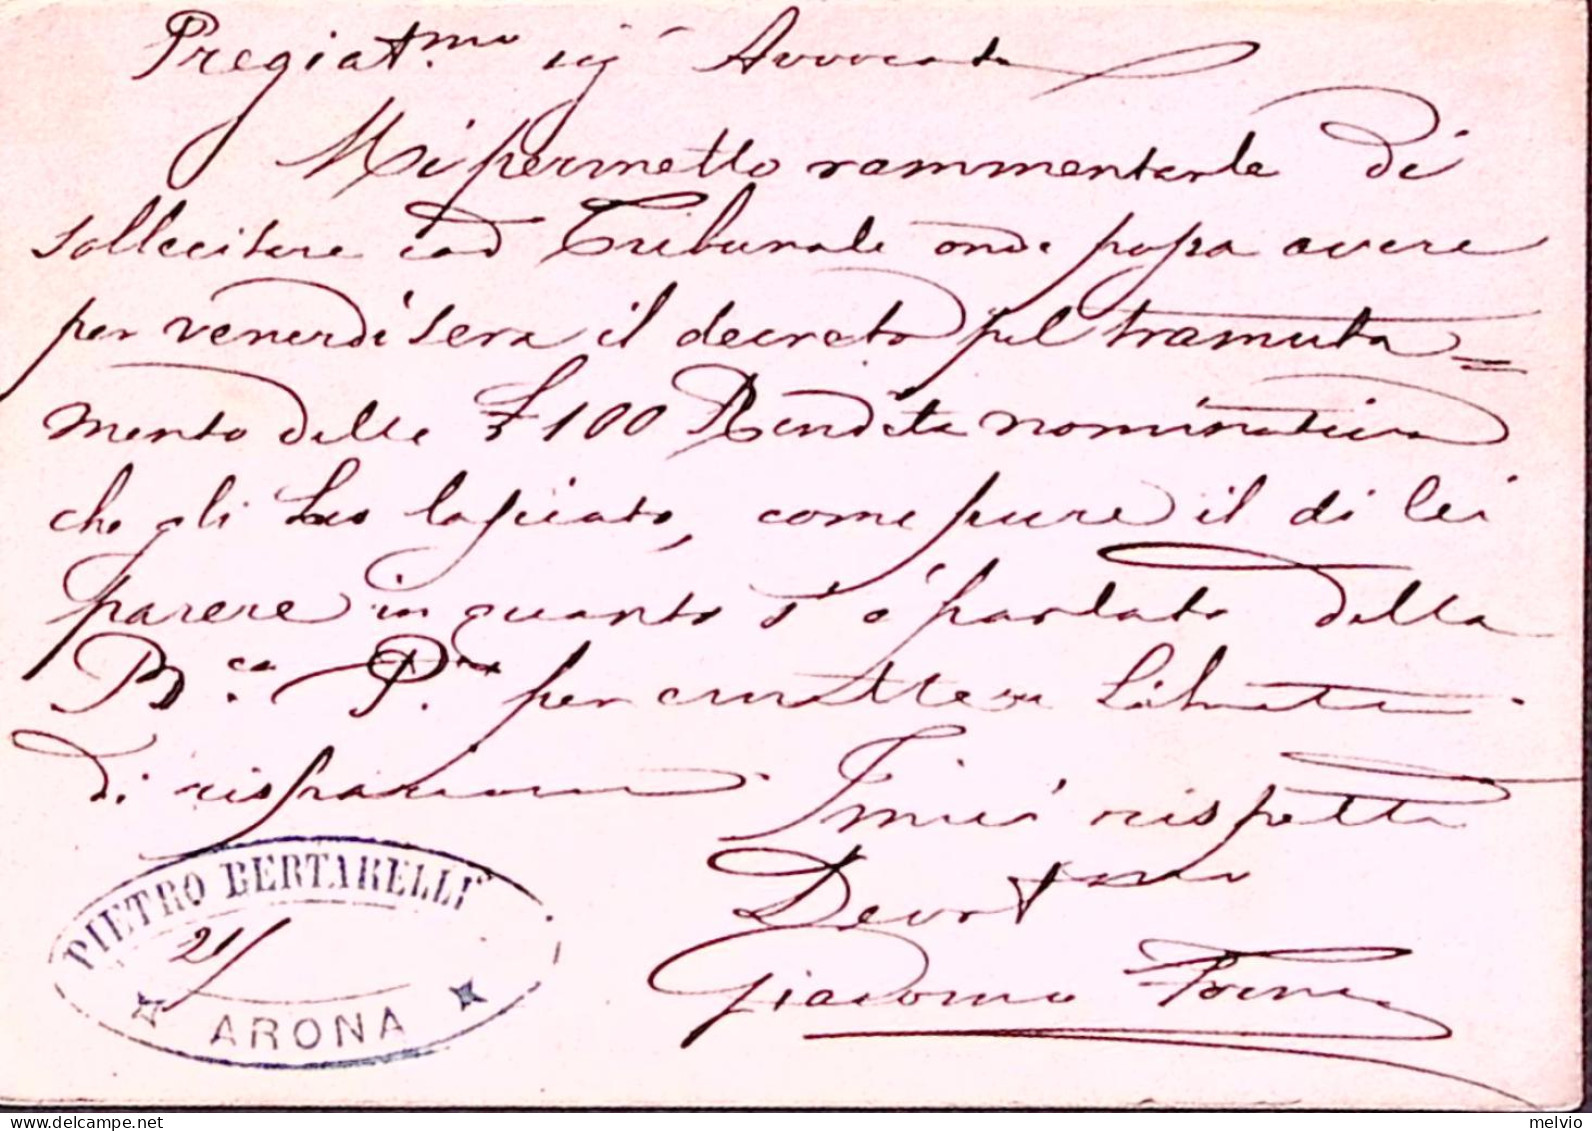 Pregiat.mo Sig.r Avvocato
Mi permetto rammentarle di
sollecitare cod Tribunale onde possa avere
per venerdì sera il decreto pel tramuta=
mento delle £ 100 Rendita nominativa
che gli ho lasciato, come pure il di lei
parere in quanto s'è parlato della
B.ca P.re per
di risparmio
I miei rispetti
Devot.mo
Giacomo
PIETRO BERTARELLI
21/
ARONA
melvio